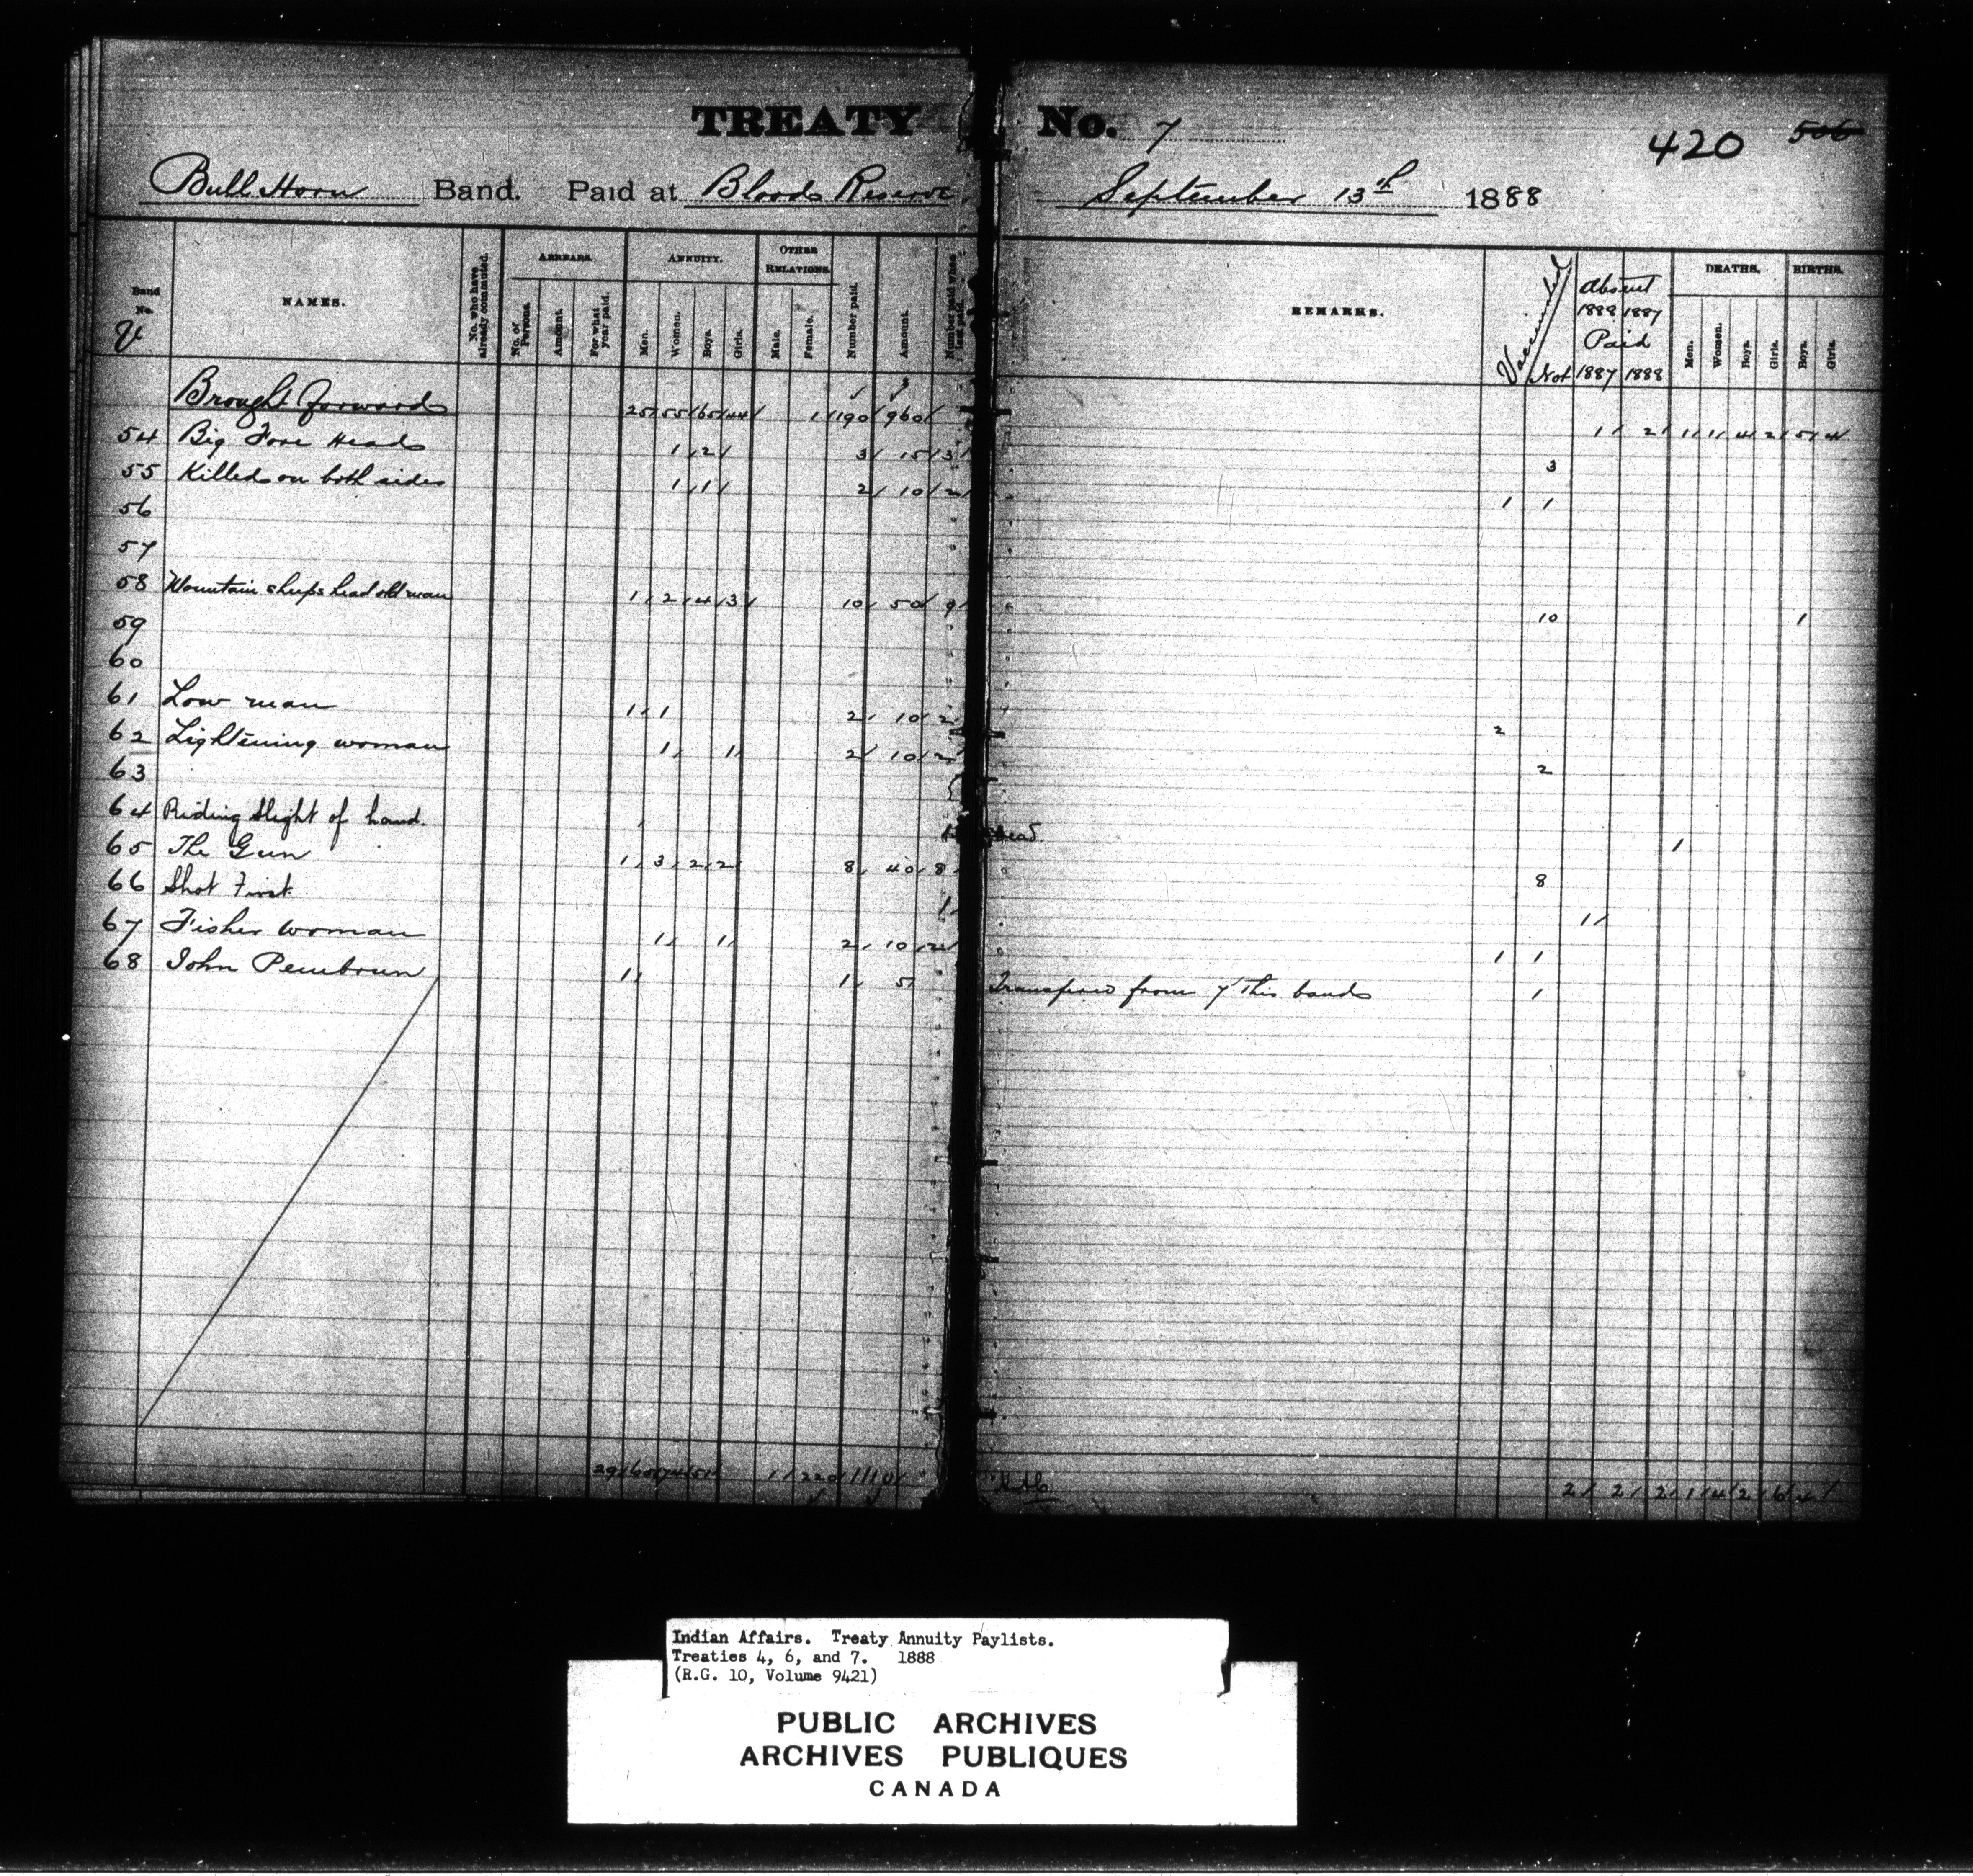 TREATY No. 7
420 506
Bull Horn Band. Paid at Bloods Reserve September 13th 1888
Band No. V
NAMES.
No. who have already commuted.
ARREARS.
No. of Persons.
Amount.
For what year paid.
ANNUITY.
Men.
Women.
Boys.
Girls.
OTHER RELATIONS.
Male.
Female.
Number paid.
Amount.
Number paid when last paid.
REMARKS.
Vaccinated
Not
Absent
1888 1887
Paid
1887 1888
DEATHS.
Men.
Women.
Boys.
Girls.
BIRTHS.
Boys.
Girls.
Brought forward 25 55 65 44 1 190 960 1 2 1 1 4 2 5 4
54 Big Fore Head 1 2 3 15 3 3
55 Killed on both sides 1 1 2 10 2 1 1
56
57
58 Mountain sheeps head old man 1 2 4 3 10 50 9 10 1
59
60
61 Low man 1 1 2 10 2 2
62 Lightening woman 1 1 2 10 2 2
63
64 Riding slight of hand. 1 Dead. 1
65 The Gun 1 3 2 2 8 40 8 8
66 Shot First 1 1
67 Fisher woman 1 1 2 10 2 1 1
68 John Pembroun 1 1 5 Transfered from 7 this band 1
29 65 74 51 1 220 1110 2 2 2 1 4 2 6 4
Indian Affairs. Treaty Annuity Paylists.
Treaties 4, 6, and 7. 1888
(R.G. 10, Volume 9421)
PUBLIC ARCHIVES
ARCHIVES PUBLIQUES
CANADA